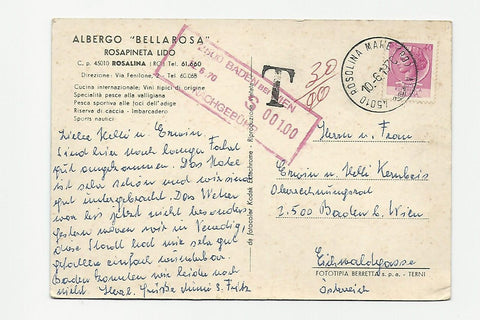 ALBERGO "BELLAROSA"
ROSAPINETA LIDO
C. p. 45010 ROSALINA (RO) Tel. 61.660
Direzione: Via Fenilone, Tel. 60.068
Cucina internazionale; Vini tipici di origine
Specialità pesce alla valligiana
Pesca sportiva alle foci dell'adige
Riserva di caccia - Imbarcadero
Sports nautici
Liebe Nelli u. Erwin.
Sind hier nach langer Fahrt
gut angekommen. Das Hotel
ist sehr schön und wir sind
gut untergebracht. Das Wetter
war bis jetzt nicht besonders
gestern waren wir in Venedig,
diese Stadt hat mir sehr gut
gefallen einfach wunderbar.
Baden konnten wir leider noch
nicht. Herzl. Grüße S. Fritz
da fotocolor Kodak Ektachrome
BADEN BEI WIEN
6.70
S 001.00
NACHGEBÜHR
T
30
00
ROSOLINA MARE
45010
Herrn u. Frau
Erwin u. Nelli
2500 Baden b. Wien
Eichwaldgasse
FOTOTIPIA BERRETTA s. p. a. - TERNI
Österreich